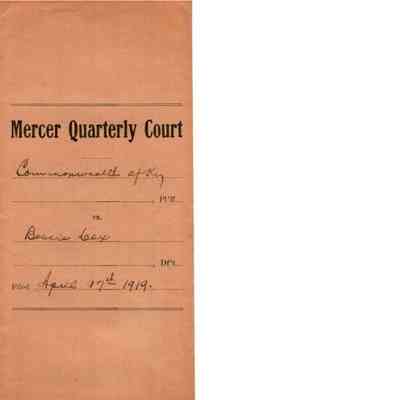 Mercer Quarterly Court
Commonwealth of Ky
, Plff.
vs.
Bessie Cox
, Dft.
Filed April 17th 1919.